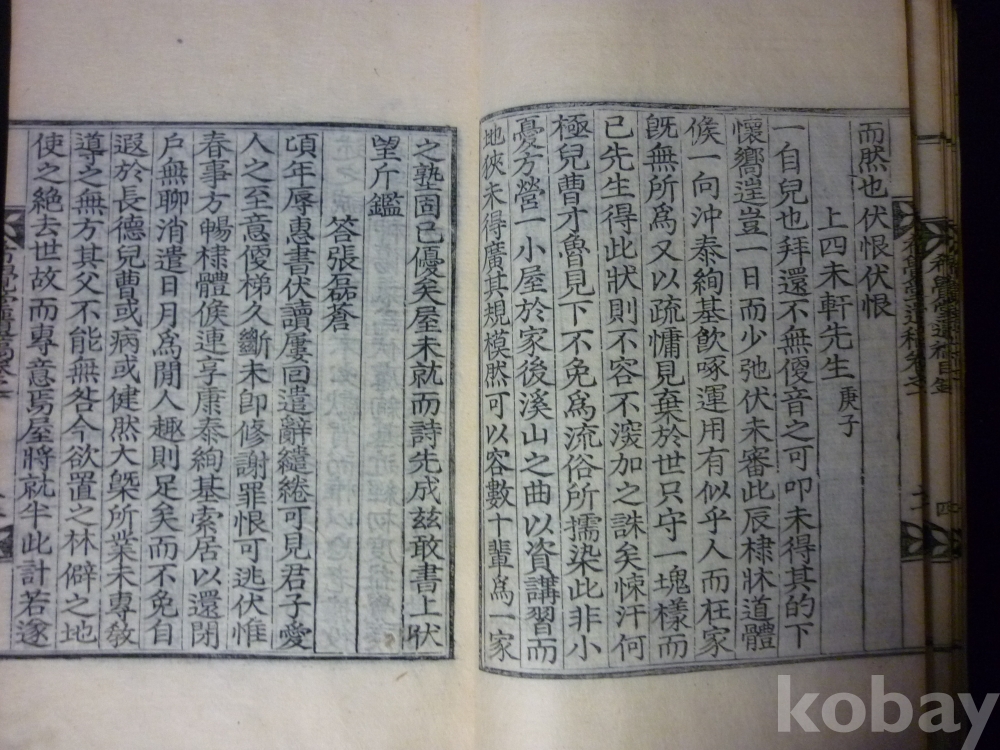 而然也伏恨伏恨
上四未軒先生 庚子
一自兒也拜還不無便音之可叩未得其的下
懷嚮𨓏豈一日而少弛伏未審此辰棣牀道體
候一向沖泰絢基飮啄運用有似乎人而在家
旣無所爲又以疏慵見棄於世只守一塊樣而
已先生得此狀則不容不深加之誅矣悚汗何
極兒曹才魯見下不免爲流俗所擩染此非小
憂方營一小屋於家後溪山之曲以資講習而
地狹未得廣其規模然可以容數十輩爲一家
之塾固已優矣屋未就而詩先成玆敢書上伏
望斤鑑
答張磊蒼
頃年辱惠書伏讀屢回遣辭繾綣可見君子愛
人之至意便梯久斷未卽修謝罪恨可逃伏惟
春事方暢棣體候連享康泰絢基索居以還閉
戶無聊消遣日月爲閒人趣則足矣而不免自
遐於長德兒曹或病或健然大槩所業未專敎
導之無方其父不能無咎今欲置之林僻之地
使之絶去世故而專意焉屋將就半此計若遂
kobay